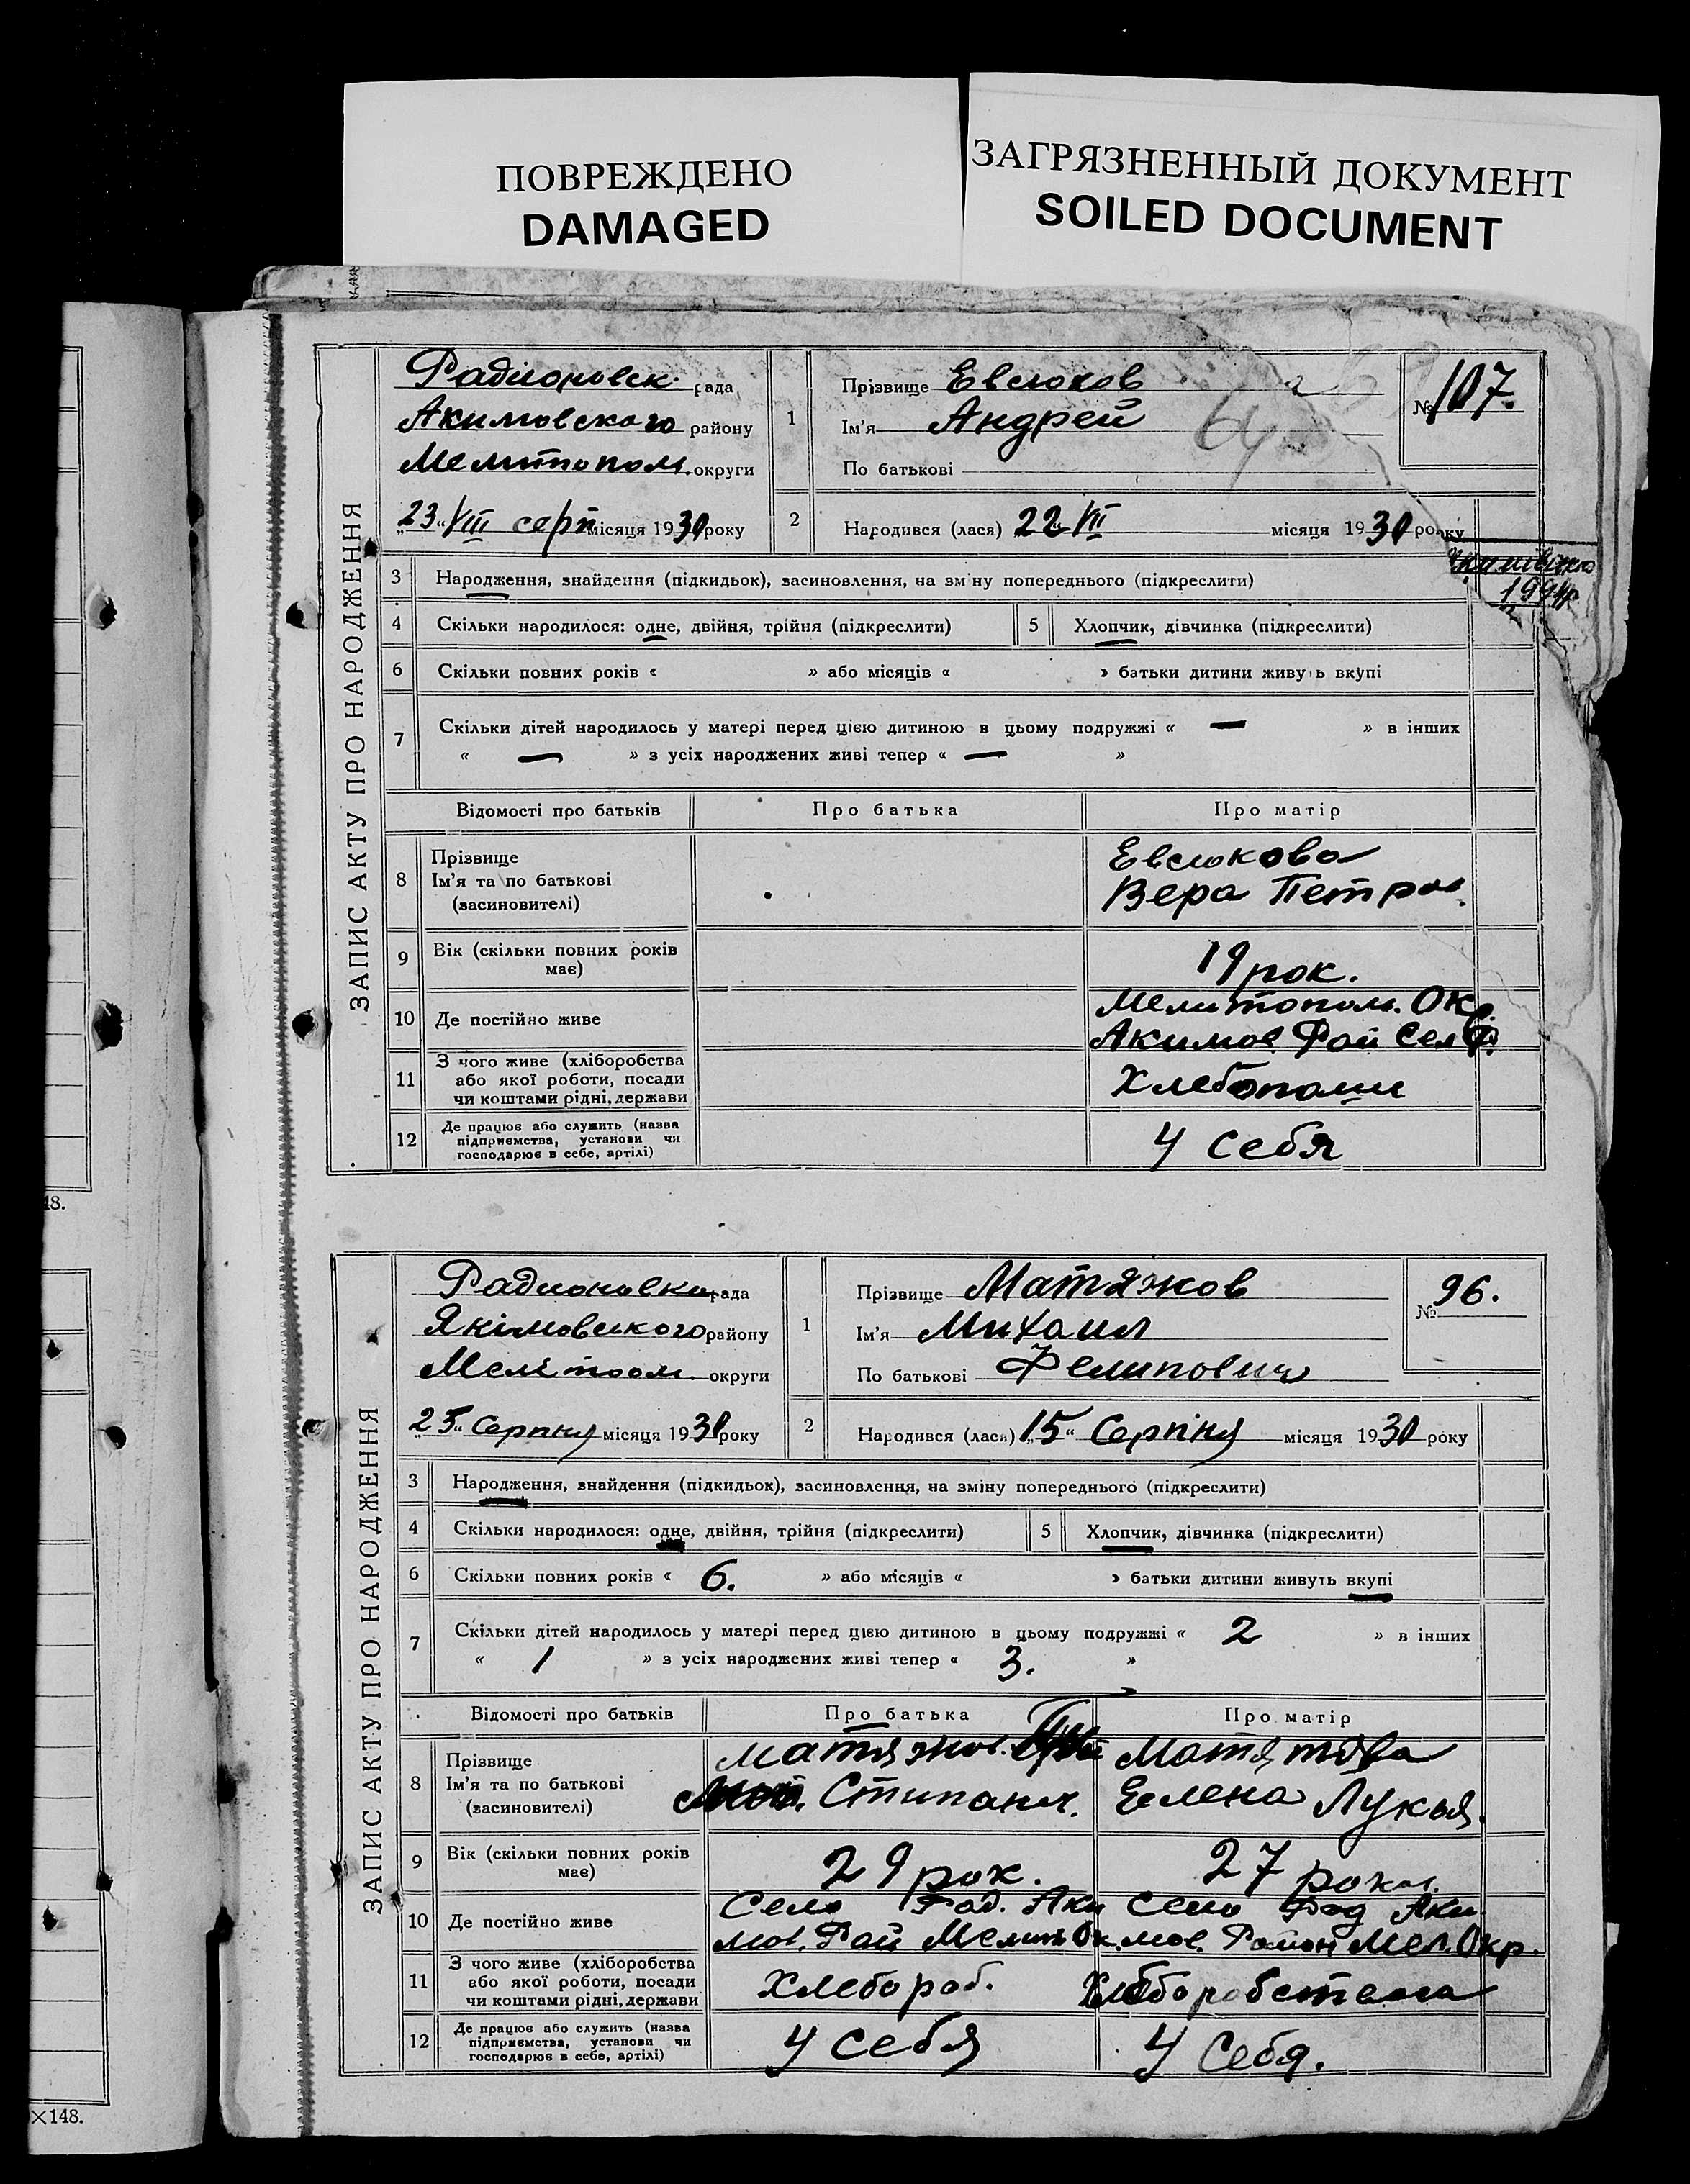 ПОВРЕЖДЕНО
DAMAGED
ЗАГРЯЗНЕННЫЙ ДОКУМЕНТ
SOILED DOCUMENT
ЗАПИС АКТУ ПРО НАРОДЖЕННЯ
Радионовск. рада
Акимовского району
Мелитопол. округи
„23“ VIII серп місяця 1930 року
1
Прізвище Евсюков
Ім'я Андрей
По батькові
64
№ 107.
2
Народився (лася) 22 VIII місяця 1930 року
1994р
3 Народження, знайдення (підкидьок), засиновлення, на зміну попереднього (підкреслити)
4 Скільки народилося: одне, двійня, трійня (підкреслити) 5 Хлопчик, дівчинка (підкреслити)
6 Скільки повних років « » або місяців « » батьки дитини живуть вкупі
7 Скільки дітей народилось у матері перед цією дитиною в цьому подружжі « — » в інших
« — » з усіх народжених живі тепер « — »
Відомості про батьків Про батька Про матір
8 Прізвище
Ім'я та по батькові
(засиновителі)
Евсюкова
Вера Петров.
9 Вік (скільки повних років
має)
19 рок.
10 Де постійно живе
Мелитопол. Окр.
Акимов Рай Сел
11 З чого живе (хліборобства
або якої роботи, посади
чи коштами рідні, держави
Хлебопаши
12 Де працює або служить (назва
підприємства, установи чи
господарює в себе, артілі)
У себя
48.
ЗАПИС АКТУ ПРО НАРОДЖЕННЯ
Радионовка рада
Якімовського району
Мелітоол. округи
„25“ Серпня місяця 1930 року
1
Прізвище Матяжов
Ім'я Михаил
По батькові Фелипович
№ 96.
2
Народився (лася) „15“ Серпіня місяця 1930 року
3 Народження, знайдення (підкидьок), засиновлення, на зміну попереднього (підкреслити)
4 Скільки народилося: одне, двійня, трійня (підкреслити) 5 Хлопчик, дівчинка (підкреслити)
6 Скільки повних років « 6. » або місяців « » батьки дитини живуть вкупі
7 Скільки дітей народилось у матері перед цією дитиною в цьому подружжі « 2 » в інших
« 1 » з усіх народжених живі тепер « 3. »
Відомості про батьків Про батька Про матір
8 Прізвище
Ім'я та по батькові
(засиновителі)
Матяжов.
Стипанич.
Елена Лукья.
9 Вік (скільки повних років
має)
29 рок.
27 рокы.
10 Де постійно живе
Село Рад. Аки
мов. Рай Мелит Ок.
Село Рад Аки
мов. Район Мел. Окр.
11 З чого живе (хліборобства
або якої роботи, посади
чи коштами рідні, держави
Хлебороб.
Хлеборобства
12 Де працює або служить (назва
підприємства, установи чи
господарює в себе, артілі)
У себя
У Себя.
×148.